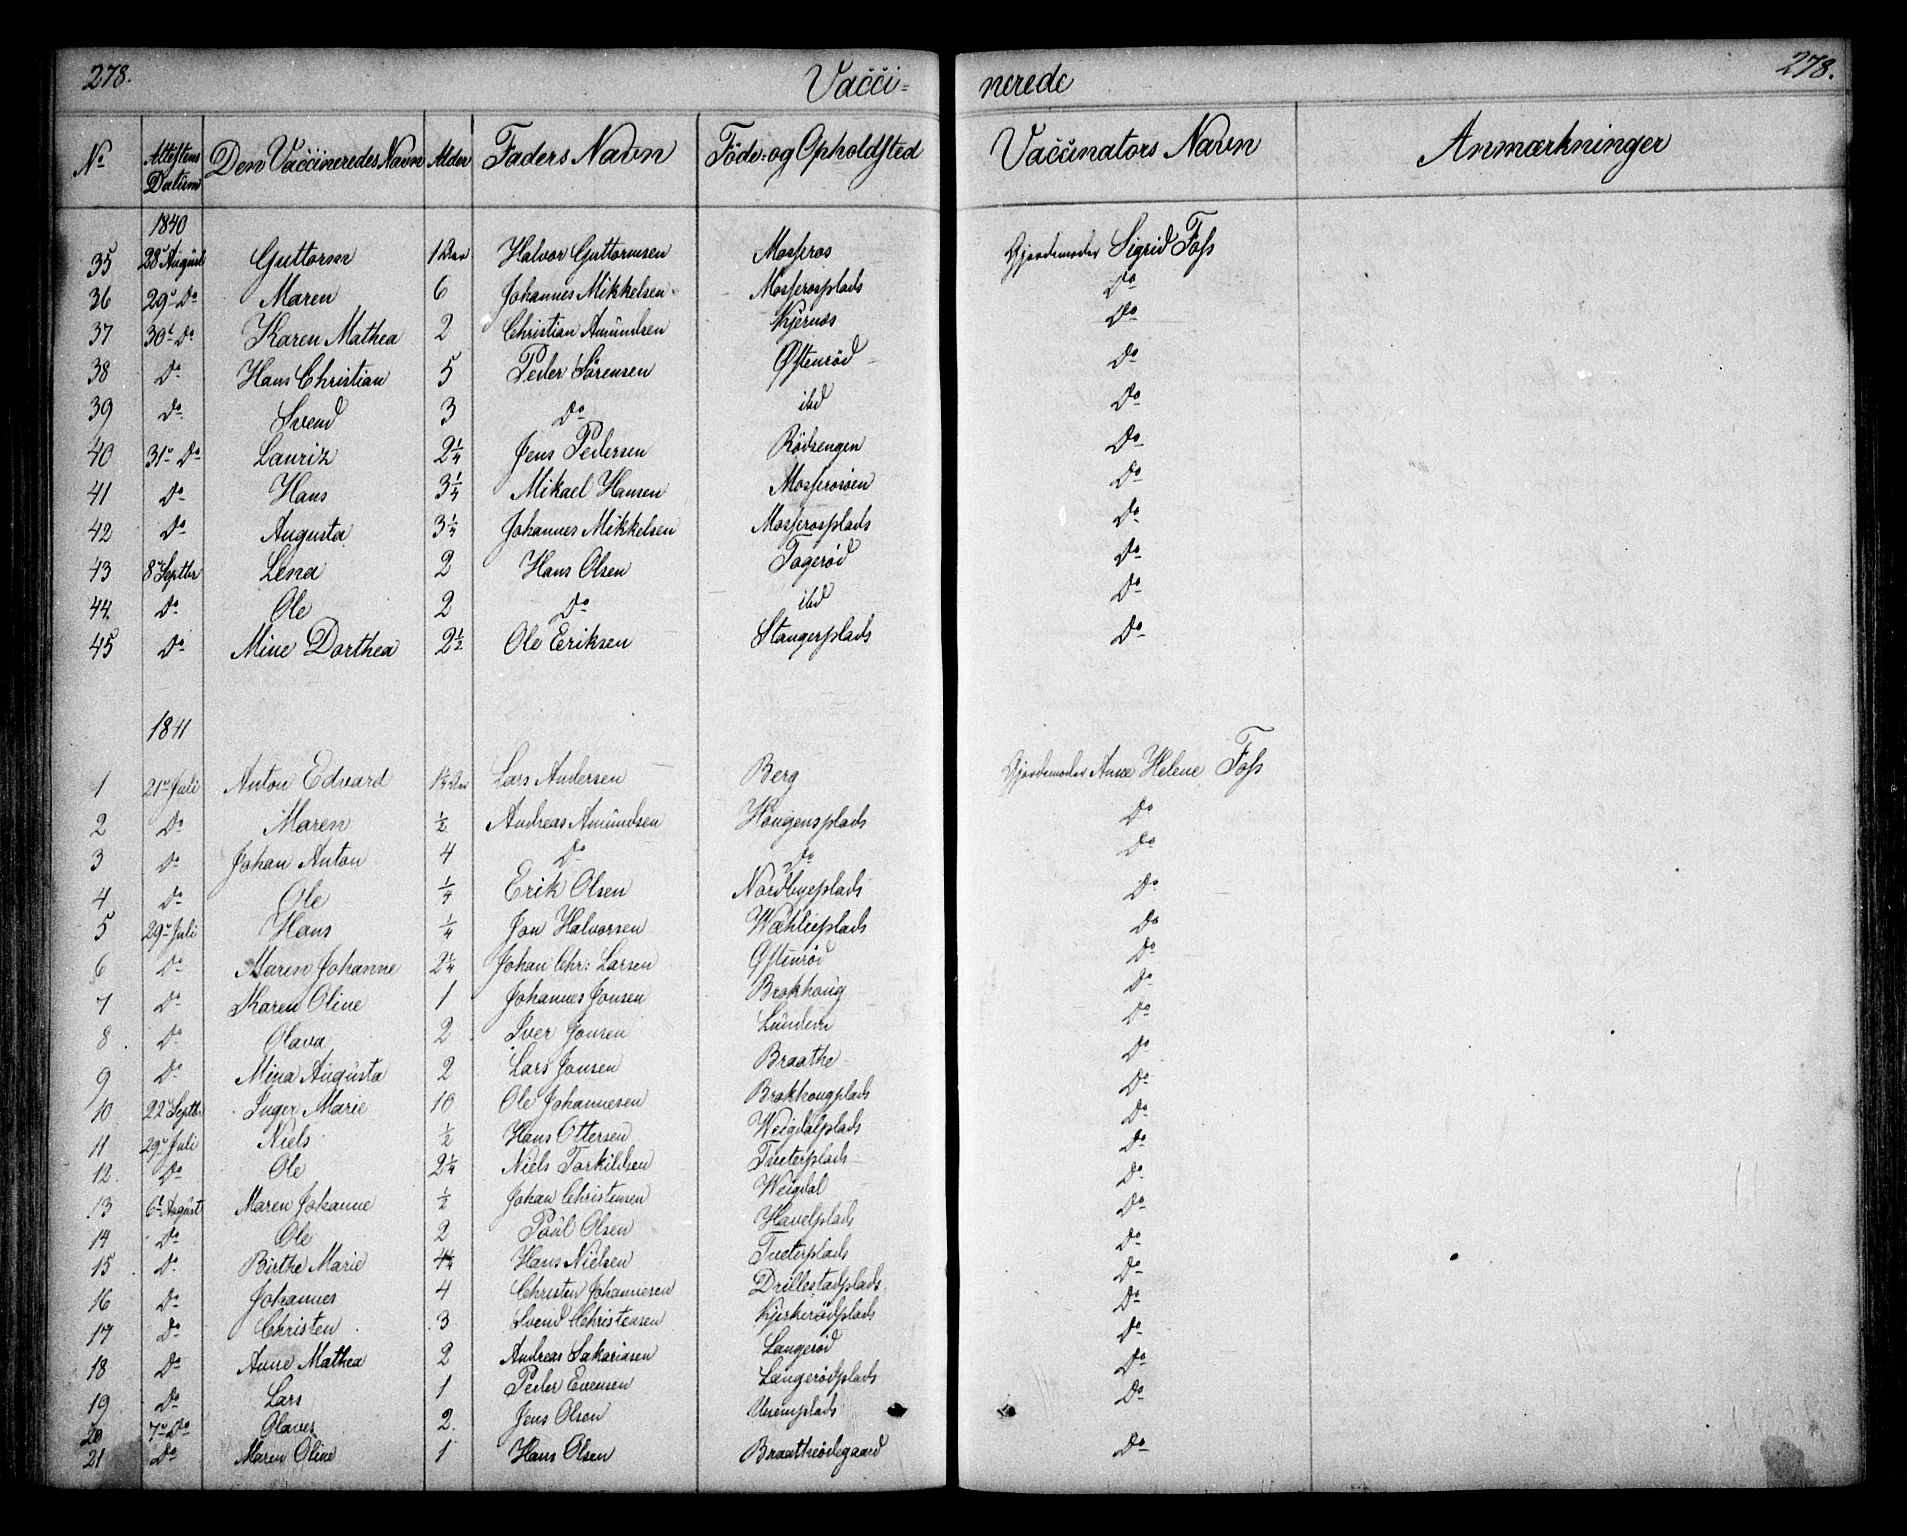 278. Vacci= nerede 278.
No Attestens Datum Den Vaccineredes Navn Alder Faders Navn Föde- og Opholdsted Vaccinators Navn Anmærkninger
1840
35 28de August Guttorm 1 Aar Halvor Guttormsen Mosseros Gjordemoder Sigrid Foss
36 29de Do Maren 6 Johannes Mikkelsen Mosserosplads Do
37 30te Do Karen Mathea 2 Christian Amundsen Kjernæs Do
38 Do Hans Christian 5 Peder Sörensen Østenrød Do
39 Do Svend 3 Do ibd Do
40 31te Do Lauriz 2 1/4 Jens Pedersen Rödsengen Do
41 Do Hans 3 1/4 Mikael Hansen Do
42 Do Augusta 3 1/4 Johannes Mikkelsen Mosserosplads Do
43 8de Septbr Lena 2 Hans Olsen Togerød Do
44. Do Ole 2 Do ibd Do
45 Do Mine Dorthea 2 1/2 Ole Eriksen Stangerplads Do
1841
1 21de Juli Anton Edvard Aar Lars Andersen Berg Gjordemoder Anne Helene Foss
2 Do Maren 1/2 Andreas Amundsen Haugensplads Do
3 Do Johan Anton 4 Do Do Do
4 Do Ole 1/4 Erik Olsen Nordbyeplads Do
5 29de Juli Hans 1/4 Jon Halvorsen Wæhlieplads Do
6 Do Maren Johanne 2 1/4 Johan Chr: Larsen Østenrød Do
7 Do Karen Oline 1 Johannes Jonsen Brokhoug Do
8 Do Olava 2 Iver Jonsen Lunden Do
9 Do Mina Augusta 2 Lars Jonsen Braathe Do
10 22de Septbr Inger Marie 10 Ole Johannesen Brokhougplads Do
11 29de Juli Niels 1/2 Hans Ottersen Weigdalplads Do
12. Do Ole 2 1/4 Niels Torkildsen Tueterplads Do
13 6te August Maren Johanne 1/2 Johan Christensen Weigdal Do
14 Do Ole 2 Poul Olsen Havelplads Do
15 Do Birthe Marie Hans Nielsen Tueterplads Do
16 Do Johannes 4 Christen Johannesen Drillestadplads Do
17 Do Christen 3 Svend Christensen Kjerkerødplads Do
18 Do Anne Mathea 2 Andreas Sakariasen Langerød Do
19 Do Lars 1 Peder Evensen Langerødplads Do
20 7de Do Olaves 2. Jens Olsen Do
21 Do Maren Oline 1 Hans Olsen Braatheödegaard Do